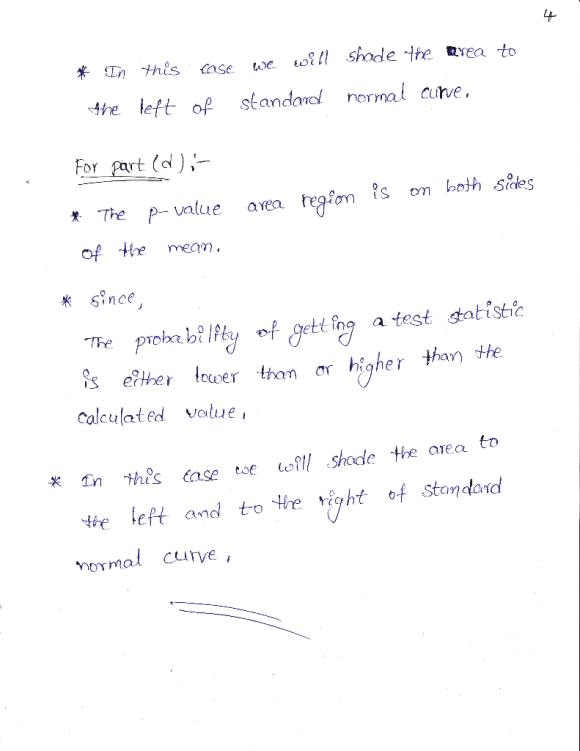 4
* In this case we will shade the area to
the left of standard normal curve.
For part (d) :-
* The p-value area region is on both sides
of the mean.
* since,
The probability of getting a test statistic
is either lower than or higher than the
calculated value,
* In this case we will shade the area to
the left and to the right of standard
normal curve,